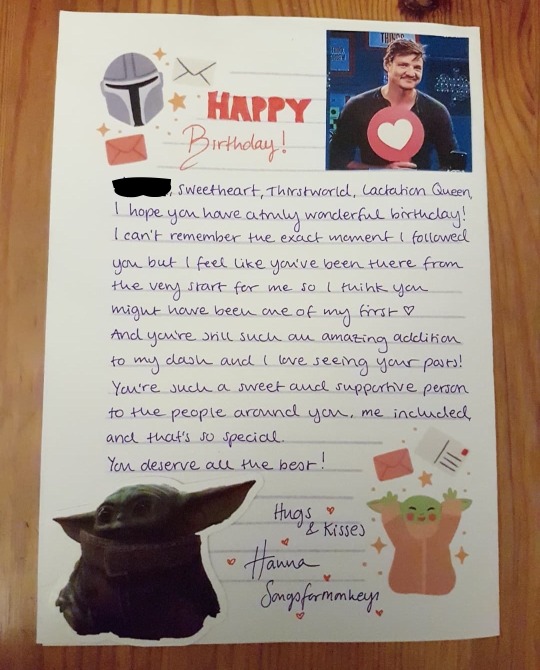 HAPPY
Birthday!
, sweetheart, Thirstworld, Lactation Queen,
I hope you have a truly wonderful birthday!
I can't remember the exact moment I followed
you but I feel like you've been there from
the very start for me so I think you
might have been one of my first ♡
And you're still such an amazing addition
to my dash and I love seeing your posts!
You're such a sweet and supportive person
to the people around you, me included,
and that's so special.
You deserve all the best!
Hugs
& Kisses
Hanna
Songsformonkeys